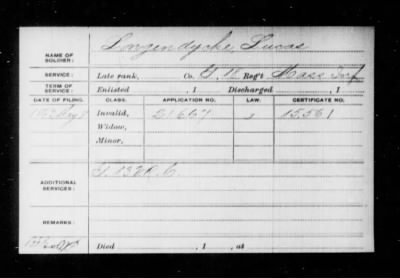 NAME OF SOLDIER:
Longendyche, Lucas
SERVICE:
Late rank, Co. G, 18 Reg't Mass Inf
TERM OF SERVICE:
Enlisted , 1 Discharged , 1
DATE OF FILING. CLASS. APPLICATION NO. LAW. CERTIFICATE NO.
Invalid, 21.667 15.561
Widow,
Minor,
ADDITIONAL SERVICES:
V.R.C
REMARKS:
Died , 1 , at